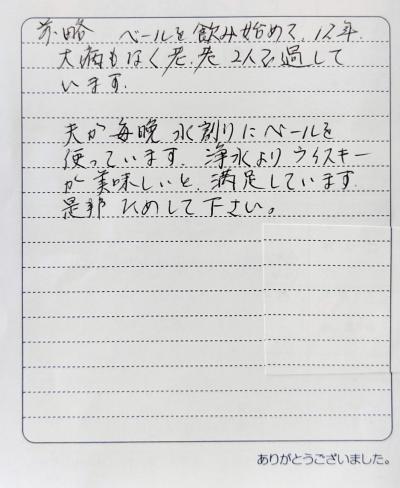 前略 ベールを飲み始めて、12年、
大病もなく老、老2人で過して
います。
夫が毎晩水割りにベールを
使っています。浄水よりウイスキー
が美味しいと、満足しています。
是非ためして下さい。
ありがとうございました。